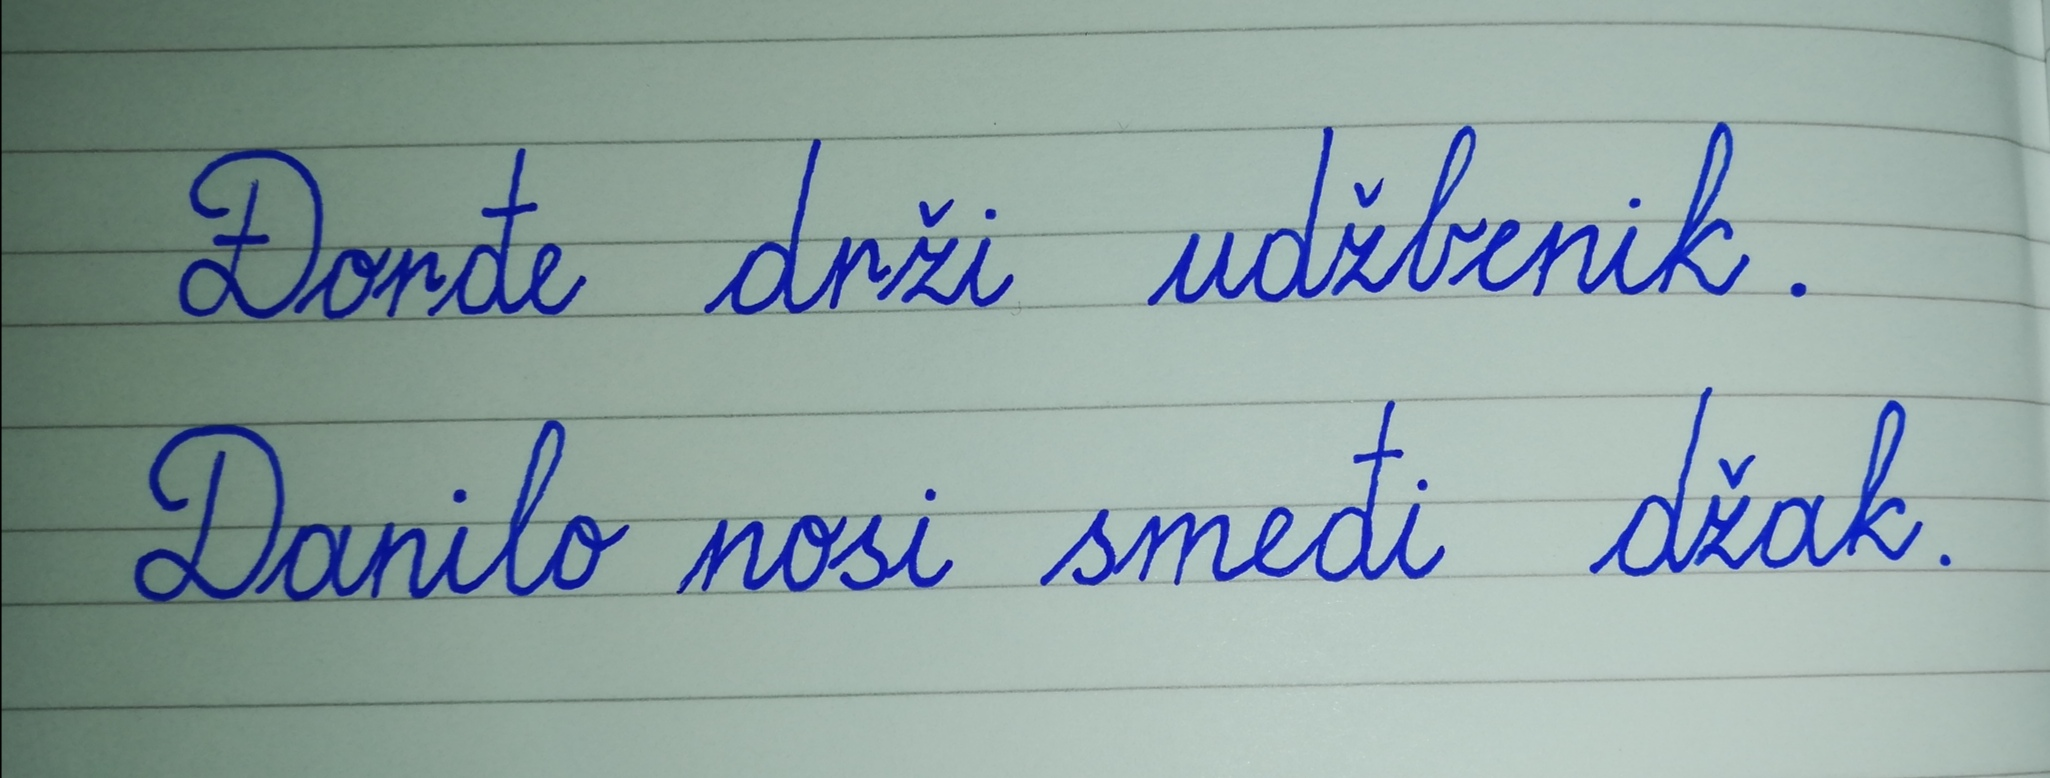 Đorđe drži udžbenik.
Danilo nosi smeđi džak.